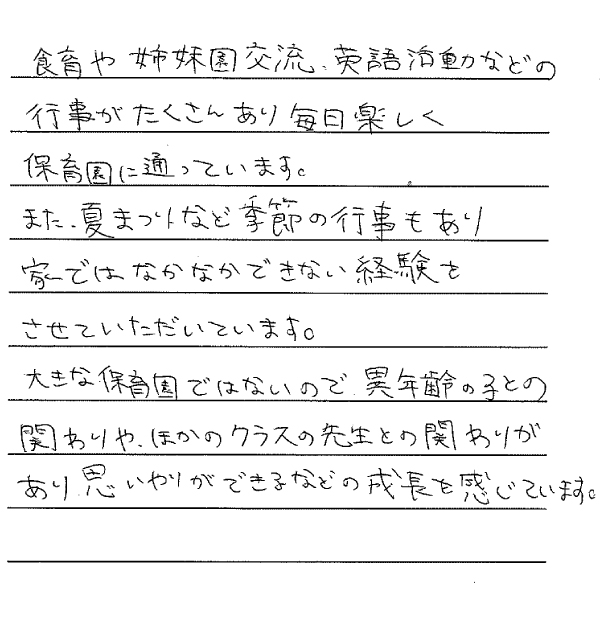 食育や姉妹園交流、英語活動などの
行事がたくさんあり毎日楽しく
保育園に通っています。
また、夏まつりなど季節の行事もあり
家ではなかなかできない経験を
させていただいています。
大きな保育園ではないので、異年齢の子との
関わりや、ほかのクラスの先生との関わりが
あり、思いやりができるなどの成長を感じています。